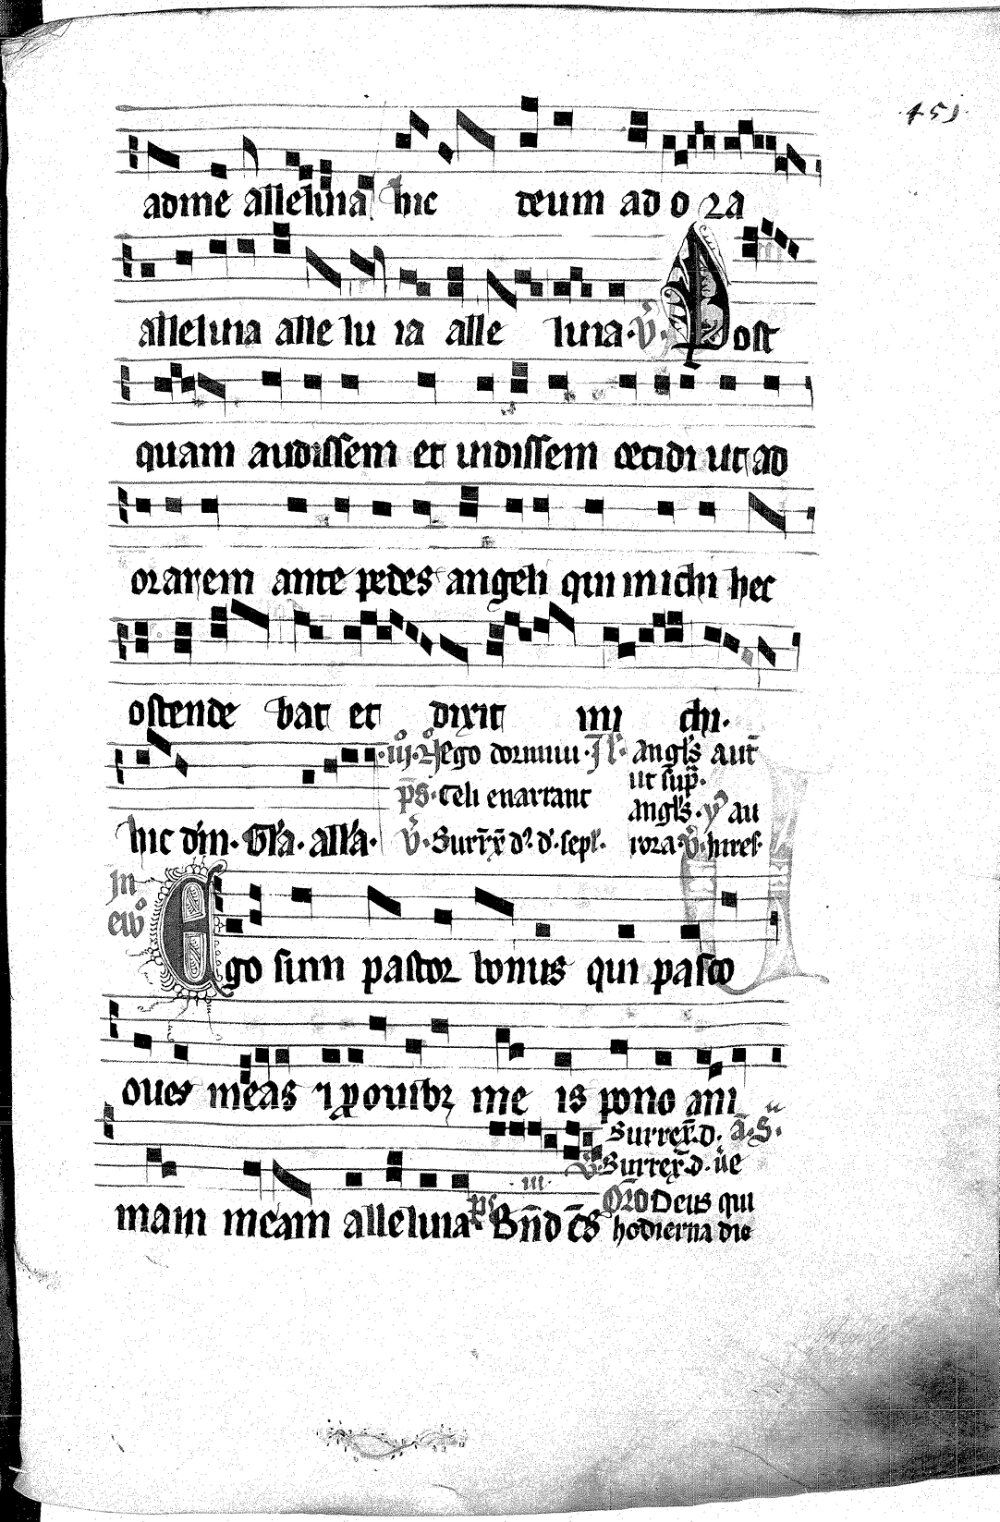 451
adme alleluia hic deum ad o ra
alleluia alle lu ia alle luia · V̊ · Post
quam audissem et uidissem cecidi ut ad
orarem ante pedes angeli qui michi hec
ostende bat et dixit mi chi ·
· iij · ꝶ Ego dormiui · Angl's aut̄
ut sup̄ ·
p̄s · Celi enarrant
angl's · au
hic dn̄i · Gl'a · all'a ·
V̊ · Surrex̄ d · sepl · rora · V̊ ·
In
eẘ
Ego sum pastor bonus qui pasco
oues meas ⁊ ꝓ ouibꝫ me is pono ani
Surrex̄ . d . a᷎ . S ·
V̊ · Surrex̄ . d .
mam meam alleluia ps Bn̄d
Or̄o Deus qui
hodierna die